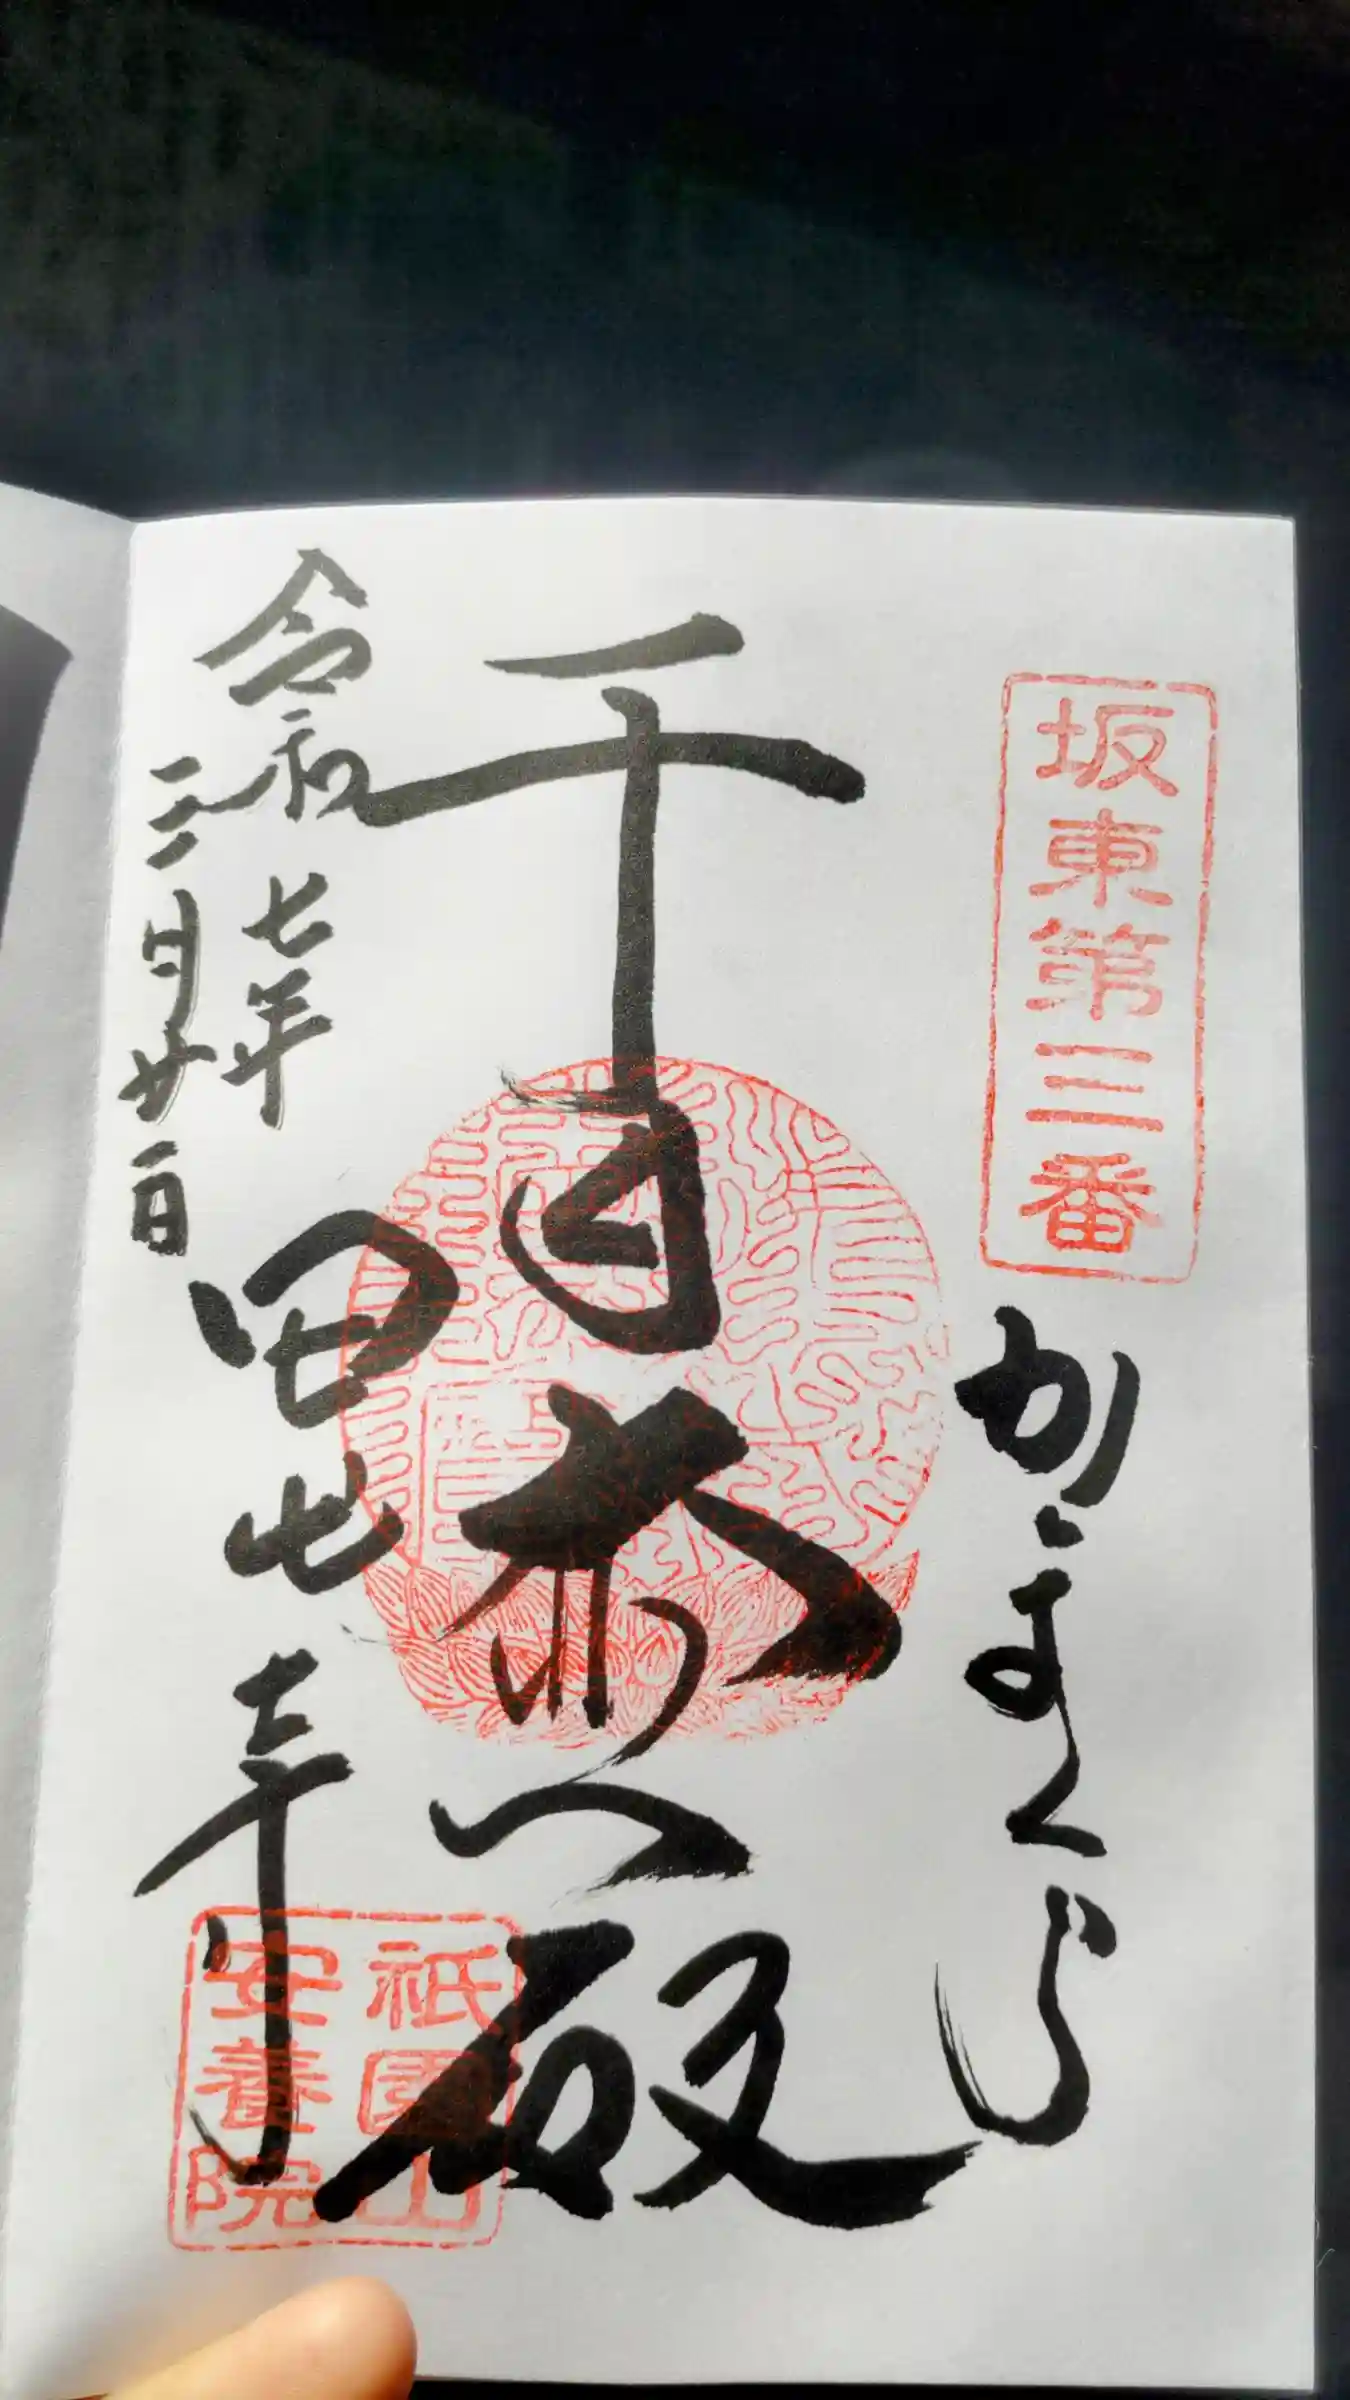 坂東第三番
かまくら
千
殿
田代寺
令和七年
三月廿一日
祇園山
安養院